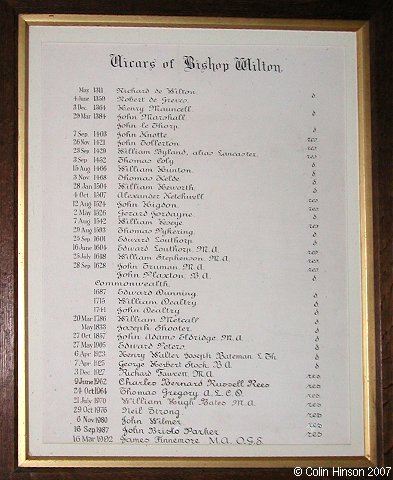 Vicars of Bishop Wilton.
May 1311 Richard de Wilton.
4 June 1359 Robert de Gresco. d
3 Dec. 1364 Henry Mauncell.
29 Mar 1384 John Marshall. d
John le Thorp.
7 Sep. 1403 John Knotte. d
26 Nov 1421 John Tollerton. res
23 Sep 1429 William Byland, alias Lancaster. res
3 Sep 1452 Thomas Coly. res
15 Aug 1466 William Hunton. d
3 Nov 1468 Thomas Kelde. d
28 Jan 1504 William Heworth. d
4 Oct. 1507 Alexander Ketchwell res
12 Aug 1524 John Hugdon. res
2 May 1526 Gerard Jordayne. d
7 Aug 1542 William Vescye d
29 Aug 1593 Thomas Pykering. res
25 Sep 1601 Edward Louthorp. d
16 June 1604 Edward Louthorp, M.A. res
25 July 1618 William Stephenson, M.A. res
28 Sep 1628 John Truman, M.A. res
John Plaxton, B.A.
Commonwealth.
1687 Edward Dunning d
1715 William Dealtry d
1741 John Dealtry d
20 Mar 1786 William Metcalf d
May 1833 Joseph Shooter. d
27 Oct 1857 John Adams Eldridge M.A. d
27 May 1905 Edward Peters. d
6 Apr 1923 Henry Walter Joseph Bateman L.Th. d
7 Apr 1925 George Herbert Stock, B.A. d
3 Dec 1927 Richard Fawcett M.A. res
9 June 1962 Charles Bernard Russell Rees res
24 Oct 1964 Thomas Gregory A.L.C.D. res
21 July 1970 William Hugh Bates M.A. res
29 Oct 1976 Neil Strong. res
6 Nov 1980 John Wilmer res
16 Sep 1987 John Bristo Parker res
16 Mar 1992 James Finnemore M.A. O.G.S.
© Colin Hinson 2007